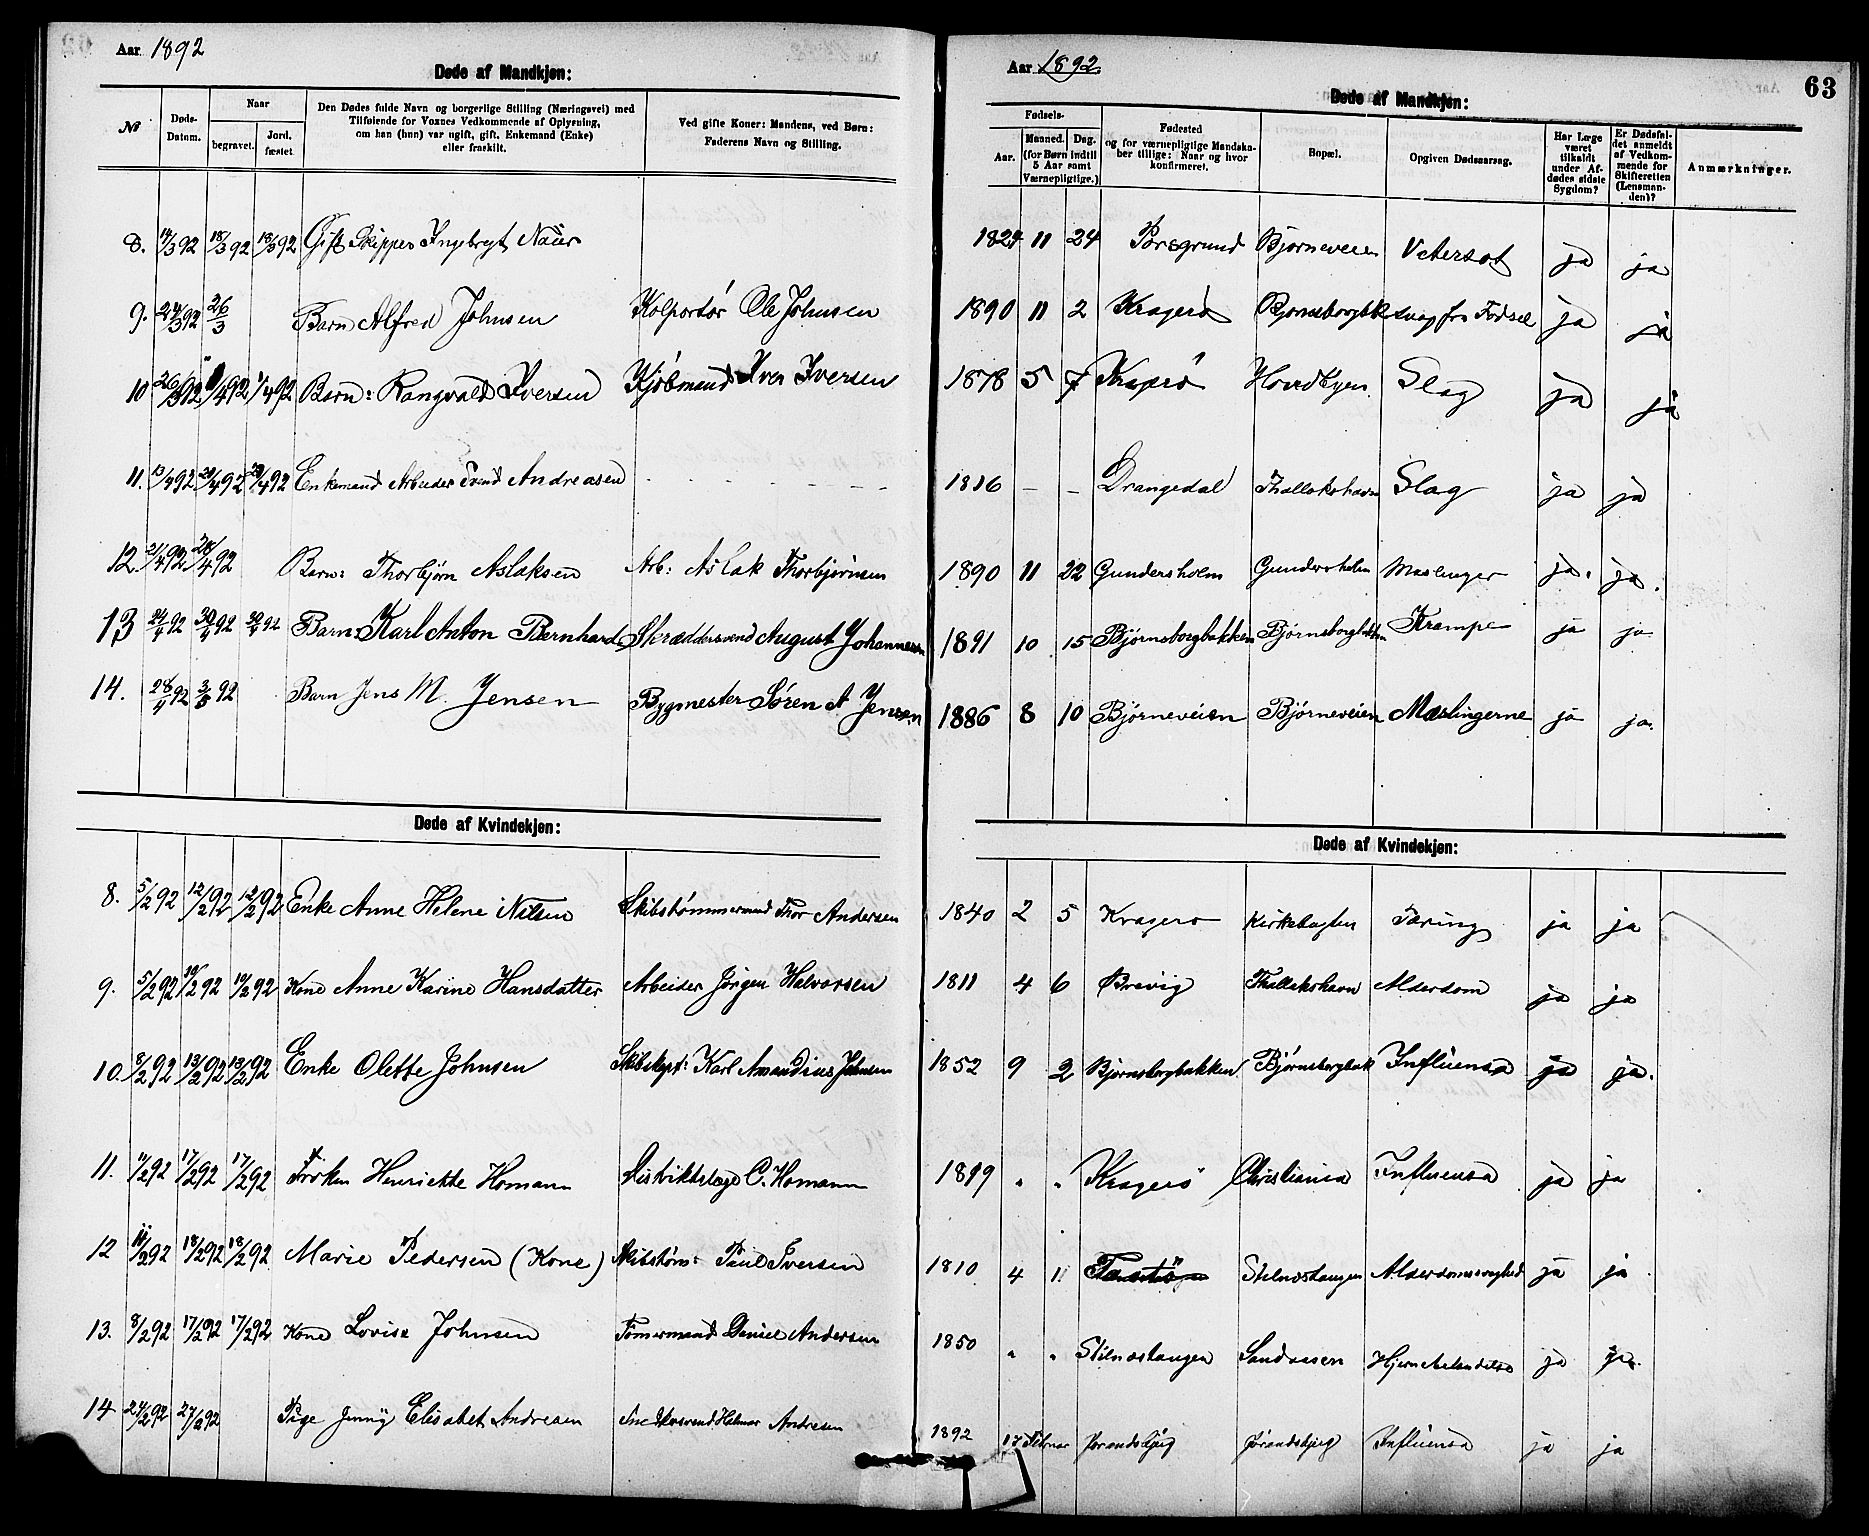 Aar 1892
Døde af Mandkjøn:
№ Døds-Datum. Naar begravet. Jord.fæstet. Den Dødes fulde Navn og borgerlige Stilling (Næringsvei) med Tilføiende for Voxnes Vedkommende af Oplysning, om han (hun) var ugift, gift, Enkemand (Enke) eller fraskilt. Ved gifte Koner: Mandens, ved Børn: Faderens Navn og Stilling.
8. 14/3 92 18/3 92 18/3 92 Gift Skipper Ingebrgt Næss
9. 24/3 92 26/3 Barn Alfred Johnsen Kolportør Ole Johnsen
10 26/3 92 1/4 92 1/4 92 Barn: Rangvald Iversen Kjøbmand Iver Iversen
11. 13/4 92 20/4 92 20/4 92 Enkemand Arbeider Svend Andreasen
12. 21/4 92 28/4 92 Barn: Thorbjørn Aslaksen Arb: Aslak Thorbjørnsen
13 24/4 92 30/4 92 30/4 92 Barn: Karl Anton Bernhard Skræddersvend August Johannesen
14. 28/4 92 3/5 92 Barn Jens M. Jensen Bygmester Søren A Jensen
Døde af Kvindekjøn:
8. 5/2 92 12/2 92 12/2 92 Enke Anne Helene Nilsen Skibstømmermand Thor Andersen
9. 5/2 92 10/2 92 10/2 92 Kone Anne Karine Hansdatter Arbeider Jørgen Halvorsen
10. 8/2 92 13/2 92 13/2 92 Enke Olette Johnsen Skibskpt: Karl Amandius Johnsen
11. 11/2 92 17/2 92 17/2 92 Frøken Henriette Homann Distriktslæge C. Homann
12 11/2 92 18/2 92 18/2 92 Marie Pedersen (Kone) Skibstøm: Paul Iversen
13. 8/2 92 17/2 92 17/2 92 Kone Lovise Johnsen Tømermand Daniel Andersen
14 24/2 92 27/2 92 Pige Jenny Elisabet Andresen Snedkersvend Halvor Andresen
Aar 1892.
63
Døde af Mandkjøn:
Fødsels- Aar. Maaned. Dag. (for Børn indtil 5 Aar samt Værnepligtige.) Fødested og for værnepligtige Mandskaber tillige: Naar og hvor konfirmeret. Bopæl. Opgiven Dødsaarsag. Har Læge været tilkaldt under Afdødes sidste Sygdom? Er Dødsfaldet anmeldt af Vedkommende for Skifteretten (Lensmanden)? Anmærkninger.
1824 11 24 Porsgrund Bjørneveien Vatersot ja ja
1890 11 2 Kragerø Bjørnsborgbk svag fra Fødsel ja ja
1878 5 7 Kragerø Hovedbyen Slag ja ja
1816 – – Drangedal Thallakshavn Slag ja ja
1890 11 22 Gundersholm Gundersholm Meslinger ja. ja.
1891 10 15 Bjørnsborgbakken Bjørnsborgbakken Krampe ja ja
1886 8 10 Bjørneveien Bjørneveien Mæslingerne ja ja.
Døde af Kvindekjøn:
1840 2 5 Kragerø Kirkebugten Tæring ja ja
1811 4 6 Brevig Thallakshavn Alderdom ja ja
1852 9 2 Bjørnsborgbakken Bjørnsborgbak Influensa ja ja.
1819 " " Kragerø Christiania Influensa ja ja
1810 4 11 Stilnestangen Alderdomssvaghed ja ja
1850 " " Stilnestangen Sandaasen Hjernebetændelse ja ja.
1892 17 Februar Jorandsbjerg Jorandsbjerg Influensa ja ja